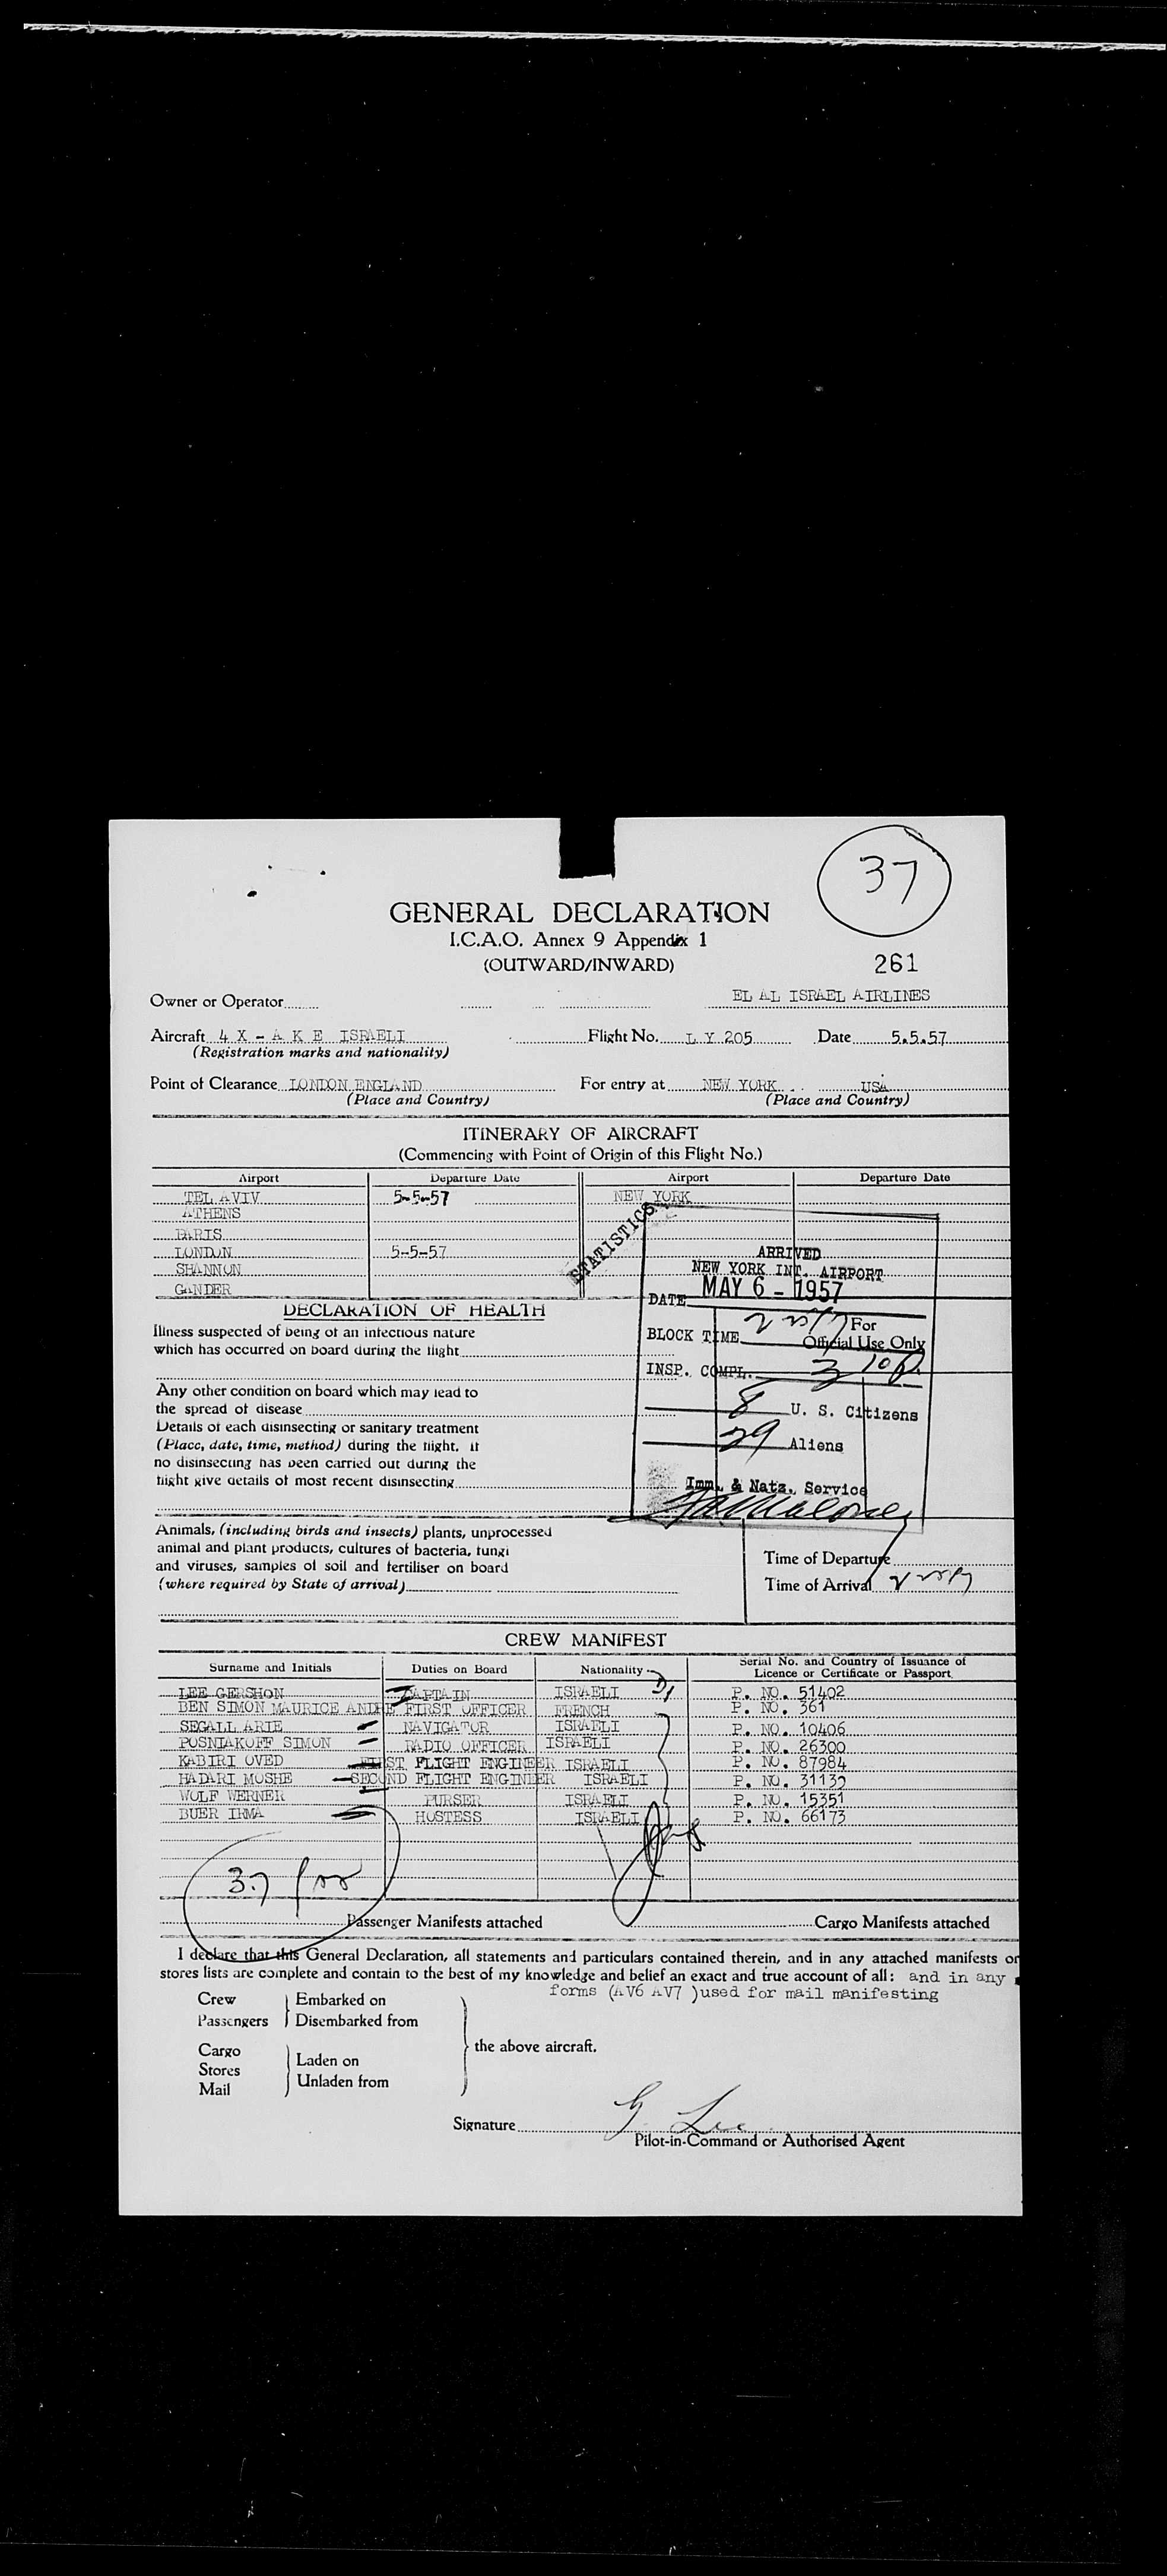 37
GENERAL DECLARATION
I.C.A.O. Annex 9 Appendix 1
(OUTWARD/INWARD)
261
Owner or Operator EL AL ISRAEL AIRLINES
Aircraft 4 X - A K E ISRAELI Flight No. L Y 205 Date 5.5.57
(Registration marks and nationality)
Point of Clearance LONDON ENGLAND For entry at NEW YORK USA
(Place and Country) (Place and Country)
ITINERARY OF AIRCRAFT
(Commencing with Point of Origin of this Flight No.)
Airport Departure Date Airport Departure Date
TEL AVIV 5-5-57 NEW YORK
ATHENS
PARIS
LONDON 5-5-57
SHANNON
GANDER
STATISTICS
ARRIVED
NEW YORK INT. AIRPORT
DATE MAY 6 - 1957
BLOCK TIME
For
Official Use Only
INSP. COMPL. 3 10 P.
8 U. S. Citizens
29 Aliens
Imm. & Natz. Service
DECLARATION OF HEALTH
Illness suspected of being of an infectious nature
which has occurred on board during the flight
Any other condition on board which may lead to
the spread of disease
Details of each disinsecting or sanitary treatment
(Place, date, time, method) during the flight. If
no disinsecting has been carried out during the
flight give details of most recent disinsecting
Animals, (including birds and insects) plants, unprocessed
animal and plant products, cultures of bacteria, fungi
and viruses, samples of soil and fertiliser on board
(where required by State of arrival)
Time of Departure
Time of Arrival
CREW MANIFEST
Surname and Initials Duties on Board Nationality Serial No. and Country of Issuance of
Licence or Certificate or Passport
LEE GERSHON CAPTAIN ISRAELI P. NO. 51402
BEN SIMON MAURICE ANDRE FIRST OFFICER FRENCH P. NO. 361
SEGALL ARIE NAVIGATOR ISRAELI P. NO. 10406
POSNIAKOFF SIMON RADIO OFFICER ISRAELI P. NO. 26300
KABIRI OVED FIRST FLIGHT ENGINEER ISRAELI P. NO. 87984
HADARI MOSHE SECOND FLIGHT ENGINEER ISRAELI P. NO. 31139
WOLF WERNER PURSER ISRAELI P. NO. 15351
BUER IRMA HOSTESS ISRAELI P. NO. 66173
37
Passenger Manifests attached Cargo Manifests attached
I declare that this General Declaration, all statements and particulars contained therein, and in any attached manifests or
stores lists are complete and contain to the best of my knowledge and belief an exact and true account of all: and in any
forms (AV6 AV7 )used for mail manifesting
Crew Embarked on
Passengers Disembarked from
the above aircraft.
Cargo
Stores Laden on
Mail Unladen from
Signature G. Lee
Pilot-in-Command or Authorised Agent